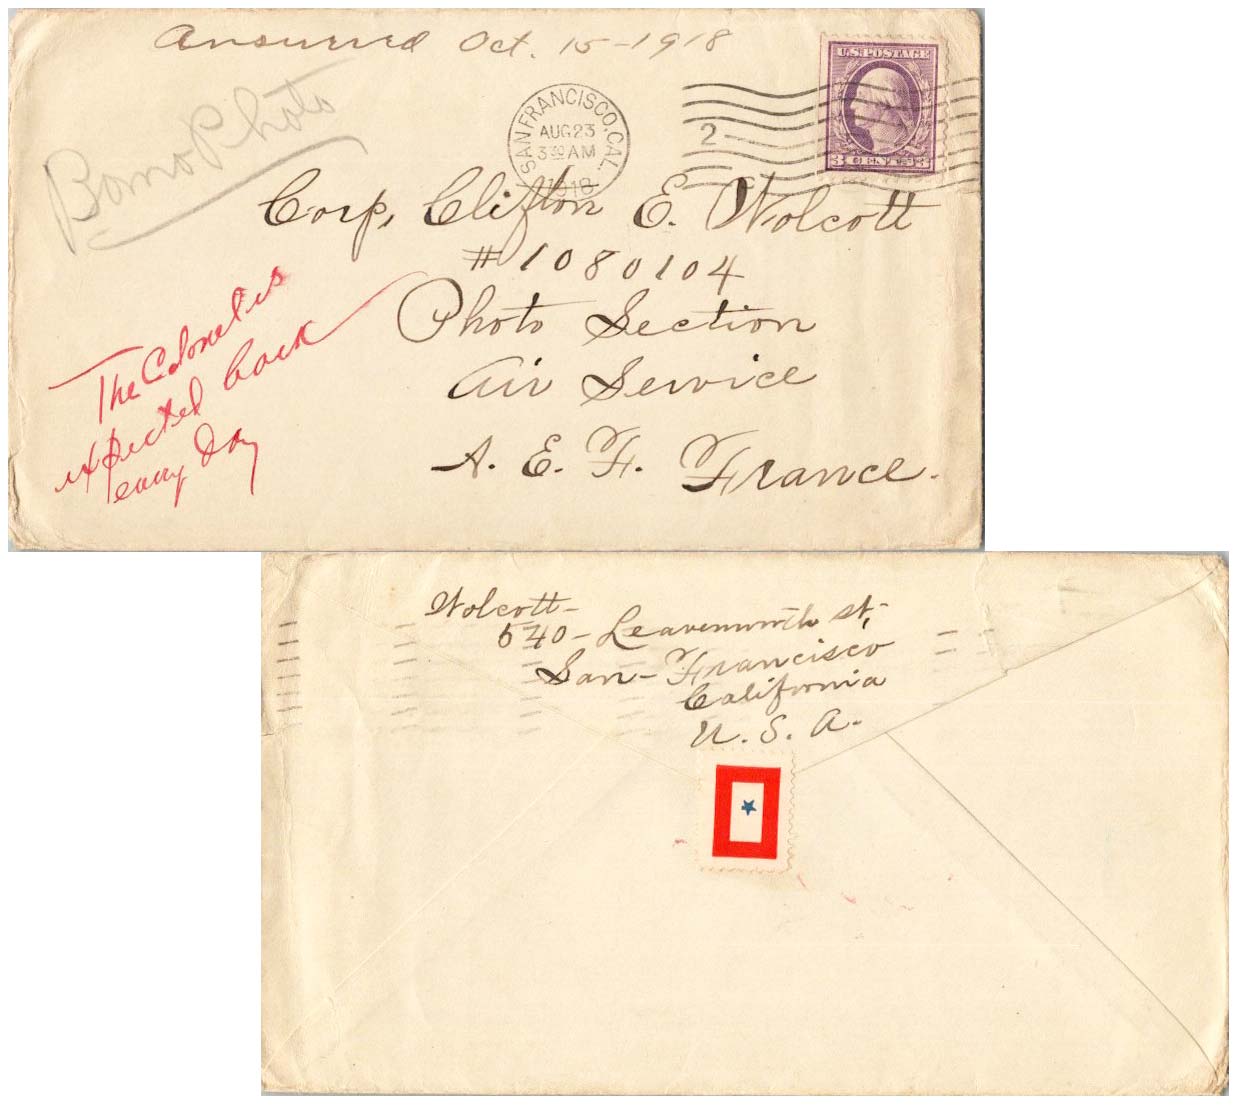 Answered Oct. 15-1918
Bomo Photo
SAN FRANCISCO, CAL.
AUG 23
3 30 AM
1918
2
U.S. POSTAGE
3 CENTS 3
Corp. Clifton E. Wolcott
#1080104
Photo Section
Air Service
A. E. F. France.
The Colonel is
expected back
every day
Wolcott-
540- Leavenworth St,
San-Francisco
California
U. S. A.